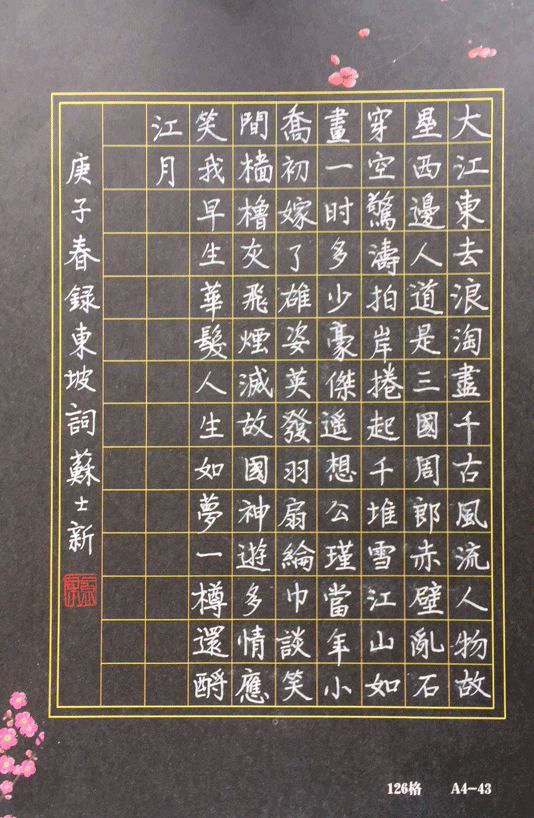 大江東去浪淘盡千古風流人物故
壘西邊人道是三國周郎赤壁亂石
穿空驚濤拍岸捲起千堆雪江山如
畫一时多少豪傑遥想公瑾當年小
喬初嫁了雄姿英發羽扇綸巾談笑
間檣櫓灰飛煙滅故國神遊多情應
笑我早生華髮人生如夢一樽還酹
江月
庚子春録東坡詞蘇士新
126格 A4-43